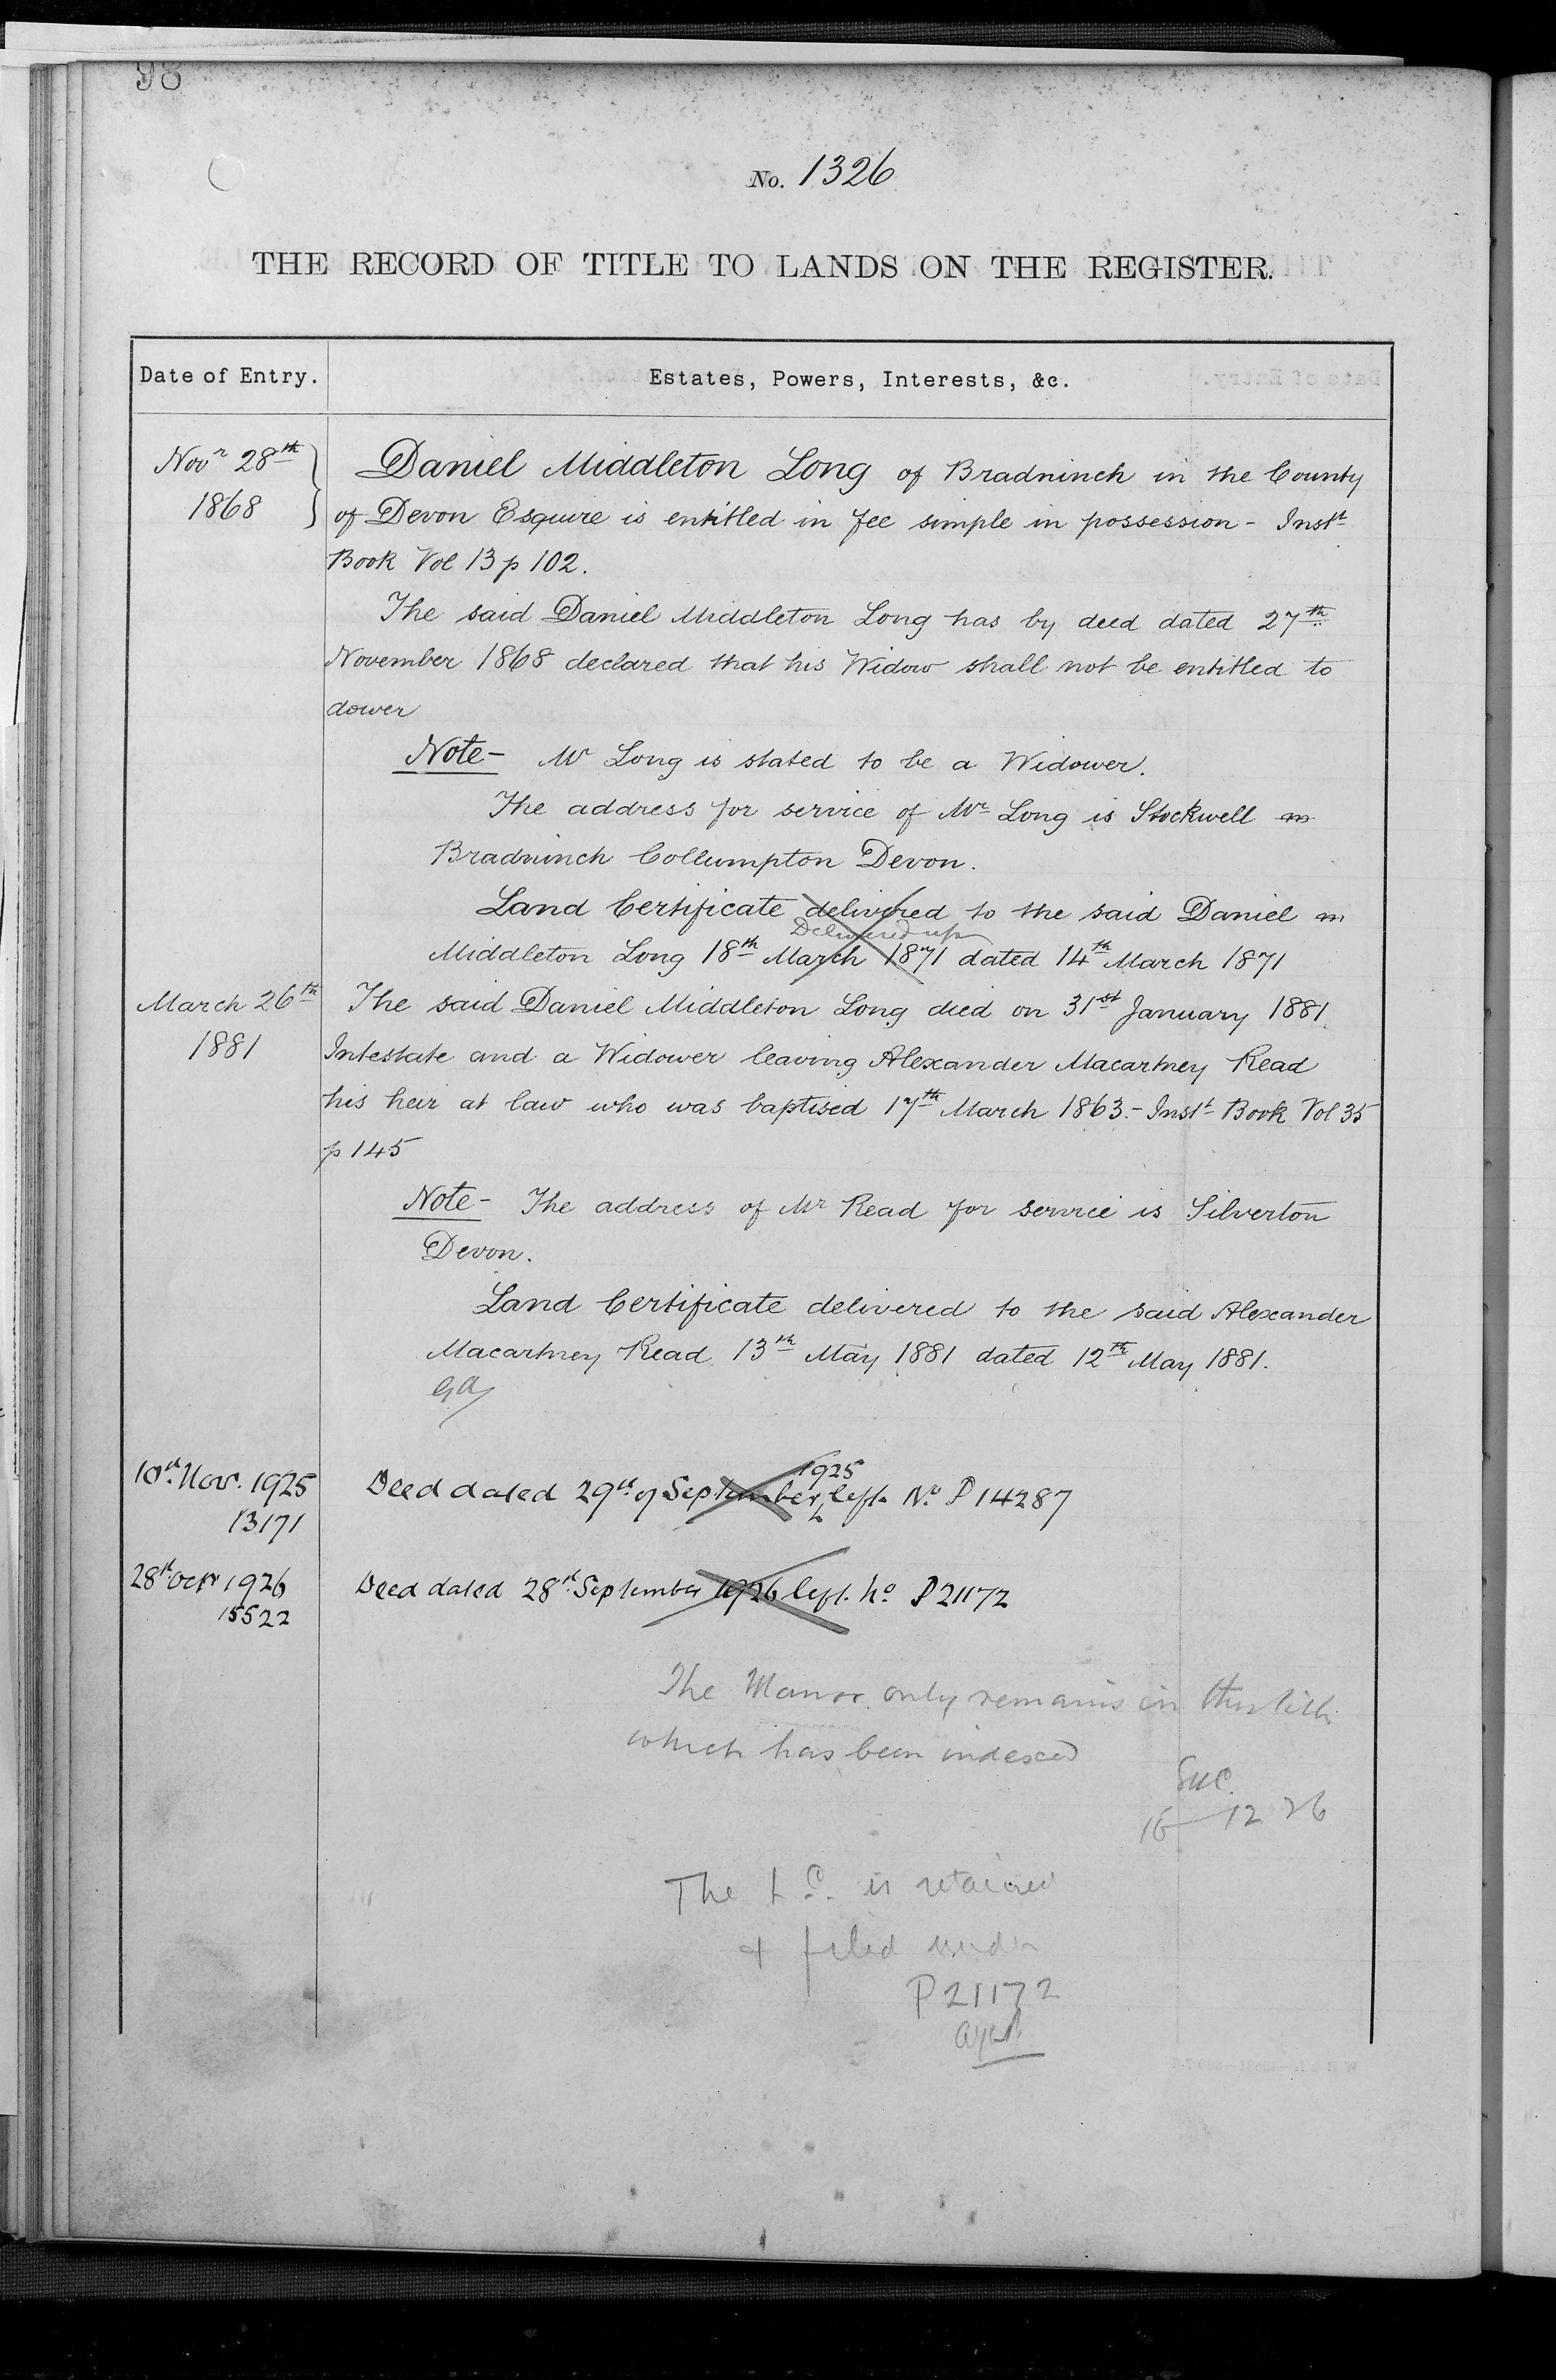 98
No. 1326
THE RECORD OF TITLE TO LANDS ON THE REGISTER.
Date of Entry.
Estates, Powers, Interests, &c.
Novr 28th
1868
Daniel Middleton Long of Bradninch in the County
of Devon Esquire is entitled in fee simple in possession - Instt
Book Vol 13 p 102.
The said Daniel Middleton Long has by deed dated 27th
November 1868 declared that his Widow shall not be entitled to
dower
Note - Mr Long is stated to be a Widower.
The address for service of Mr Long is Stockwell
Bradninch Collumpton Devon.
Land Certificate delivered to the said Daniel
Delivered up
Middleton Long 18th March 1871 dated 14th March 1871
March 26th
1881
The said Daniel Middleton Long died on 31st January 1881
Intestate and a Widower leaving Alexander Macartney Read
his heir at law who was baptised 17th March 1863. - Instt Book Vol 35
p 145
Note - The address of Mr Read for service is Silverton
Devon.
Land Certificate delivered to the said Alexander
Macartney Read 13th May 1881 dated 12th May 1881.
10th Nov. 1925
13171
1925
Deed dated 29th of September, left. No P 14287
28th Octr 1926
15522
Deed dated 28th September 1926 left. No P 21172
The Manor only remains in this title
which has been indexed
12 26
The L.C. is retained
& filed under
P 21172